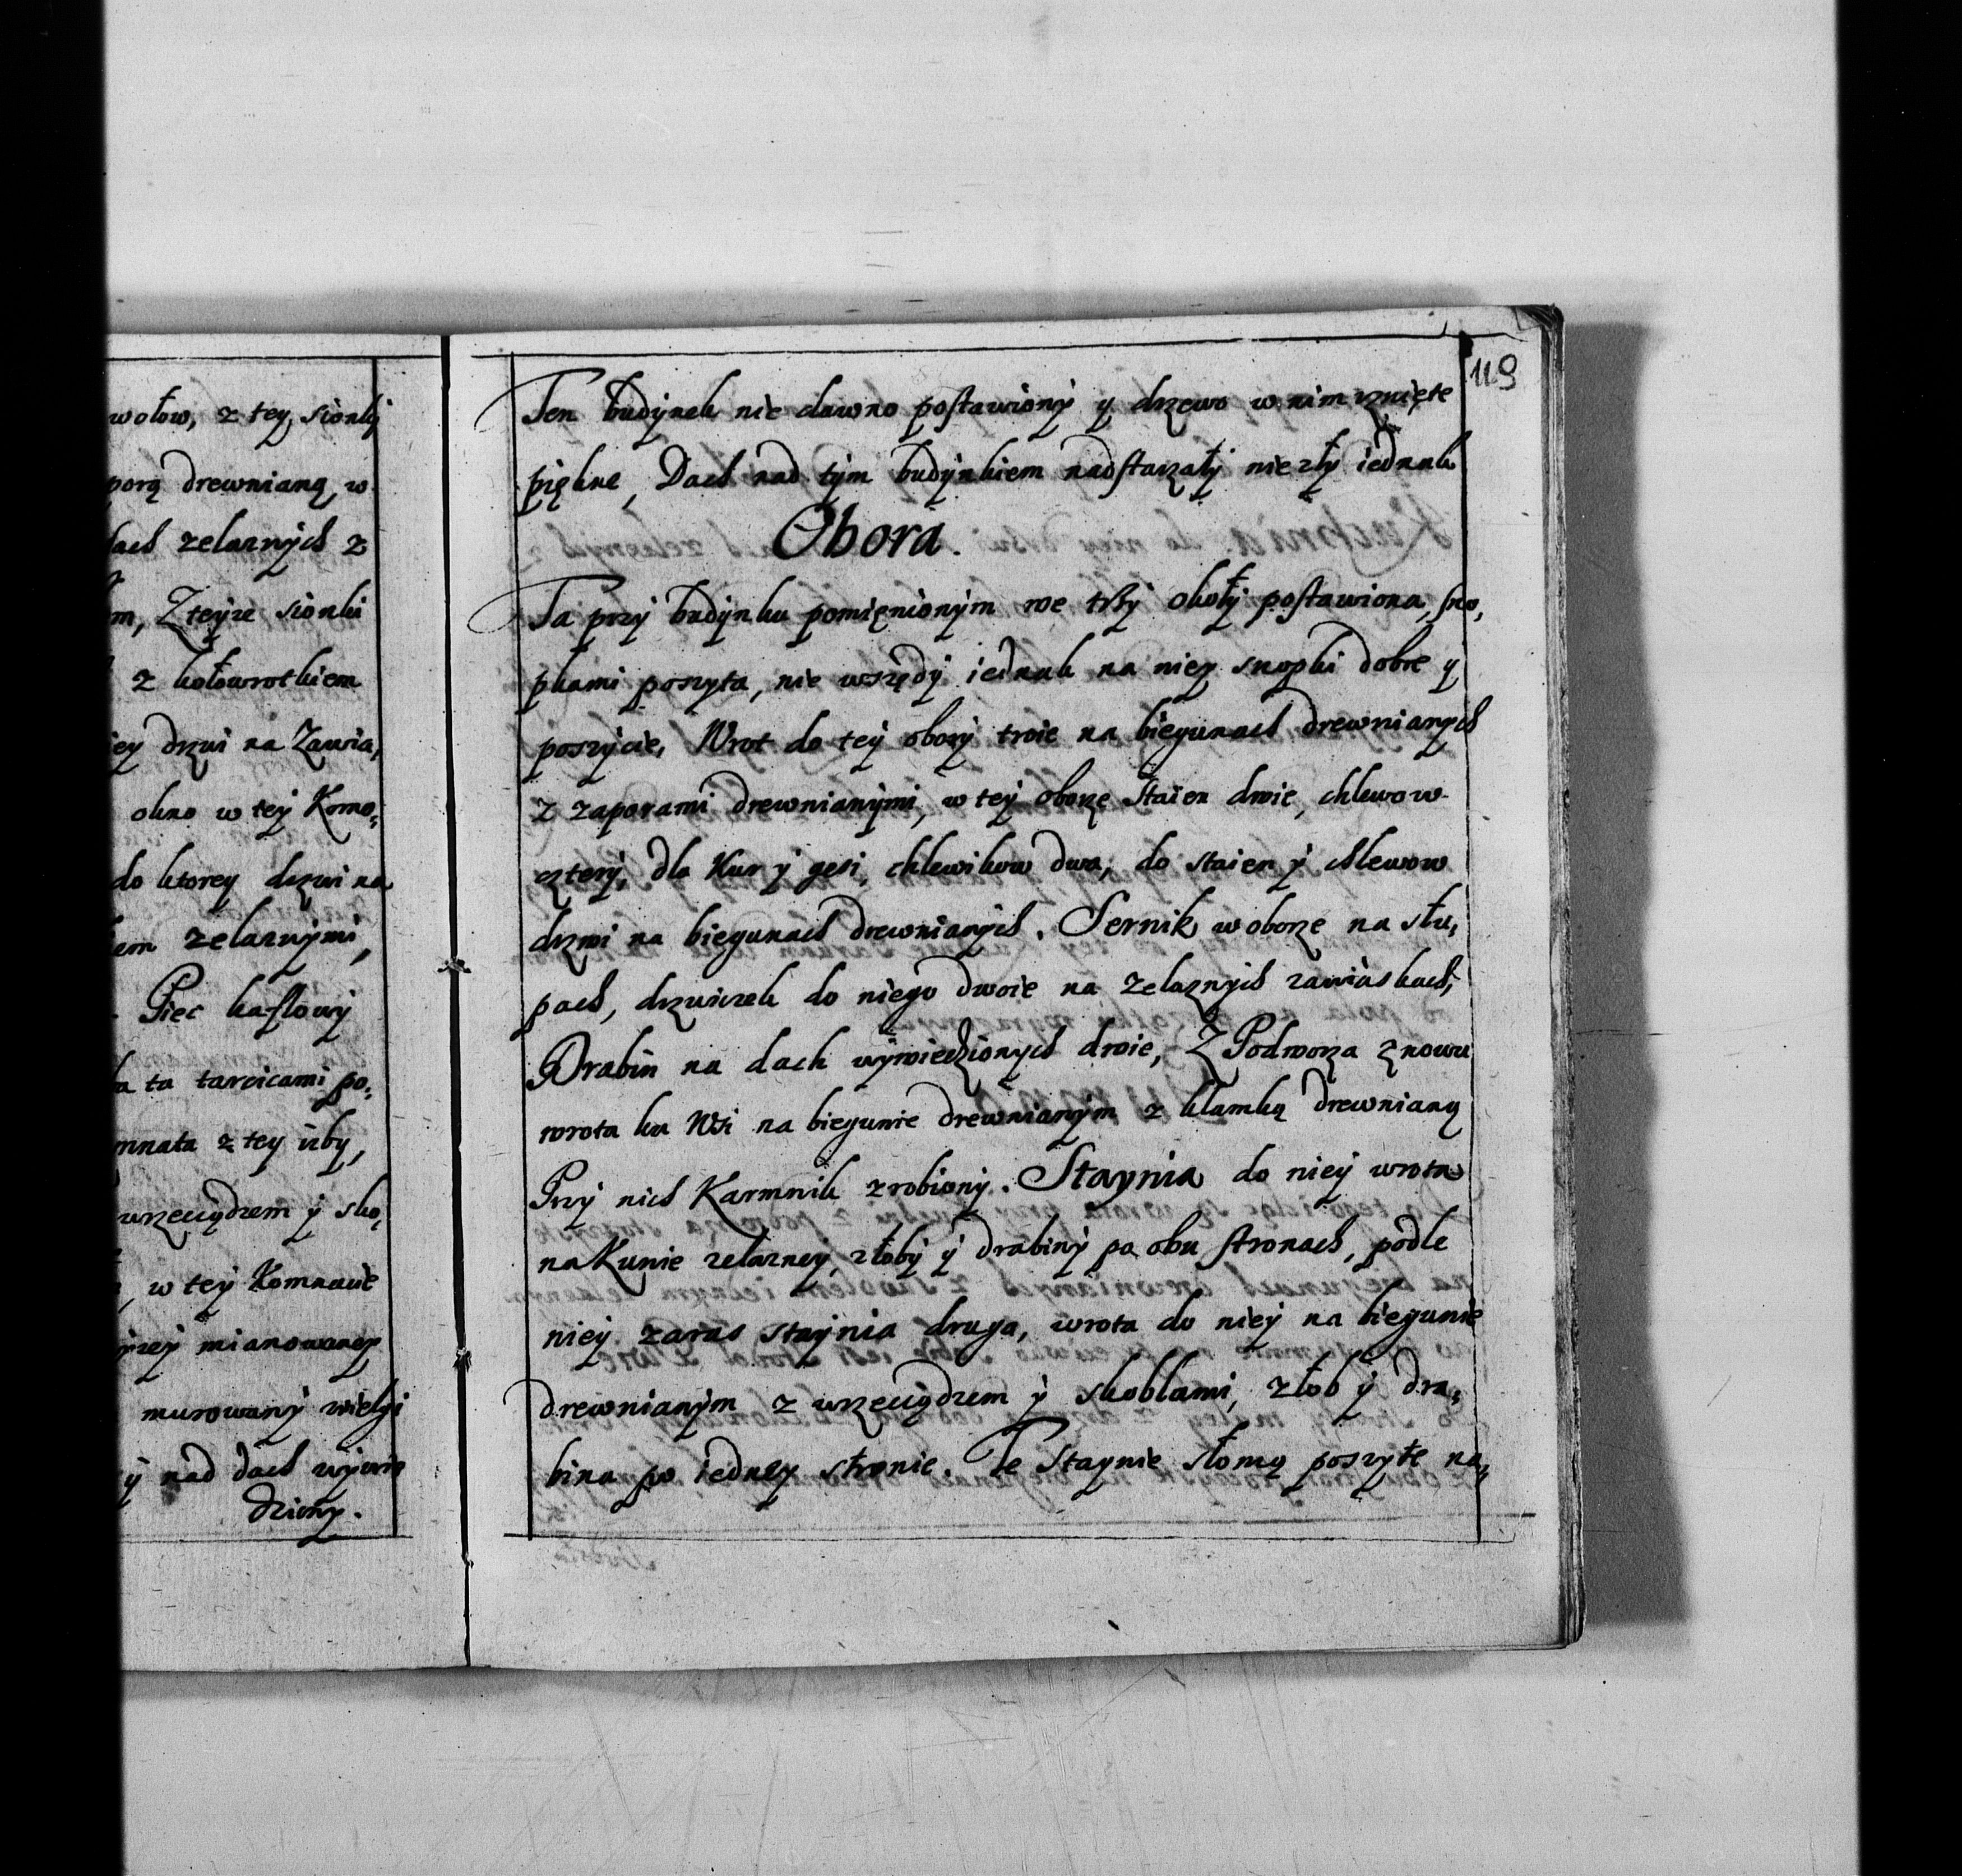 wołow, z tey sionky
porą drewnianą, w
dach zelaznych z
m, Z teyze sionki
z kołowrotkiem
iey drzwi na Zawia,
okno w tey Komo,
do ktorey drzwi na
kem zelaznymi,
Piec kaflowy
ta tarcicami po,
mnata z tey izby,
wrzeciądzem y sko,
, w tey Komnacie
yzey mianowaney
murowany wielgi
y nad dach wywie
dziony.
119
Ten budynek nie dawno postawiony y drzewo w nim rznięte
piękne, Dach nad tym budynkiem nadstarzały niezły iednak
Obora.
Ta przy budynku pomienionym we trzy okoły postawiona, sno,
pkami poszyta, nie wszędy iednak na niey snopki dobre y
poszycie, Wrot do tey obory troie na biegunach drewnianych
z zaporami drewnianymi, w tey oborze Staien dwie, chlewow
cztery, dla Kur y gesi, chlewikow dwa, do staien y chlewow
drzwi na biegunach drewnianych. Sernik w oborze na słu,
pach, drzwiczek do niego dwoie na zelaznych zawiaskach,
Drabin na dach wywiedzionych dwie, Z Podworza znowu
wrota ku Wsi na biegunie drewnianym z klamką drewnianą
Przy nich Karmnik zrobiony. Staynia do niey wrota
na Kunie zelazney, złoby y drabiny po obu stronach, podle
niey zaras staynia druga, wrota do niey na biegunie
drewnianym z wrzeciądzem y skoblami, złob y dra,
bina po iedney stronie. Te Staynie słomą poszyte na,